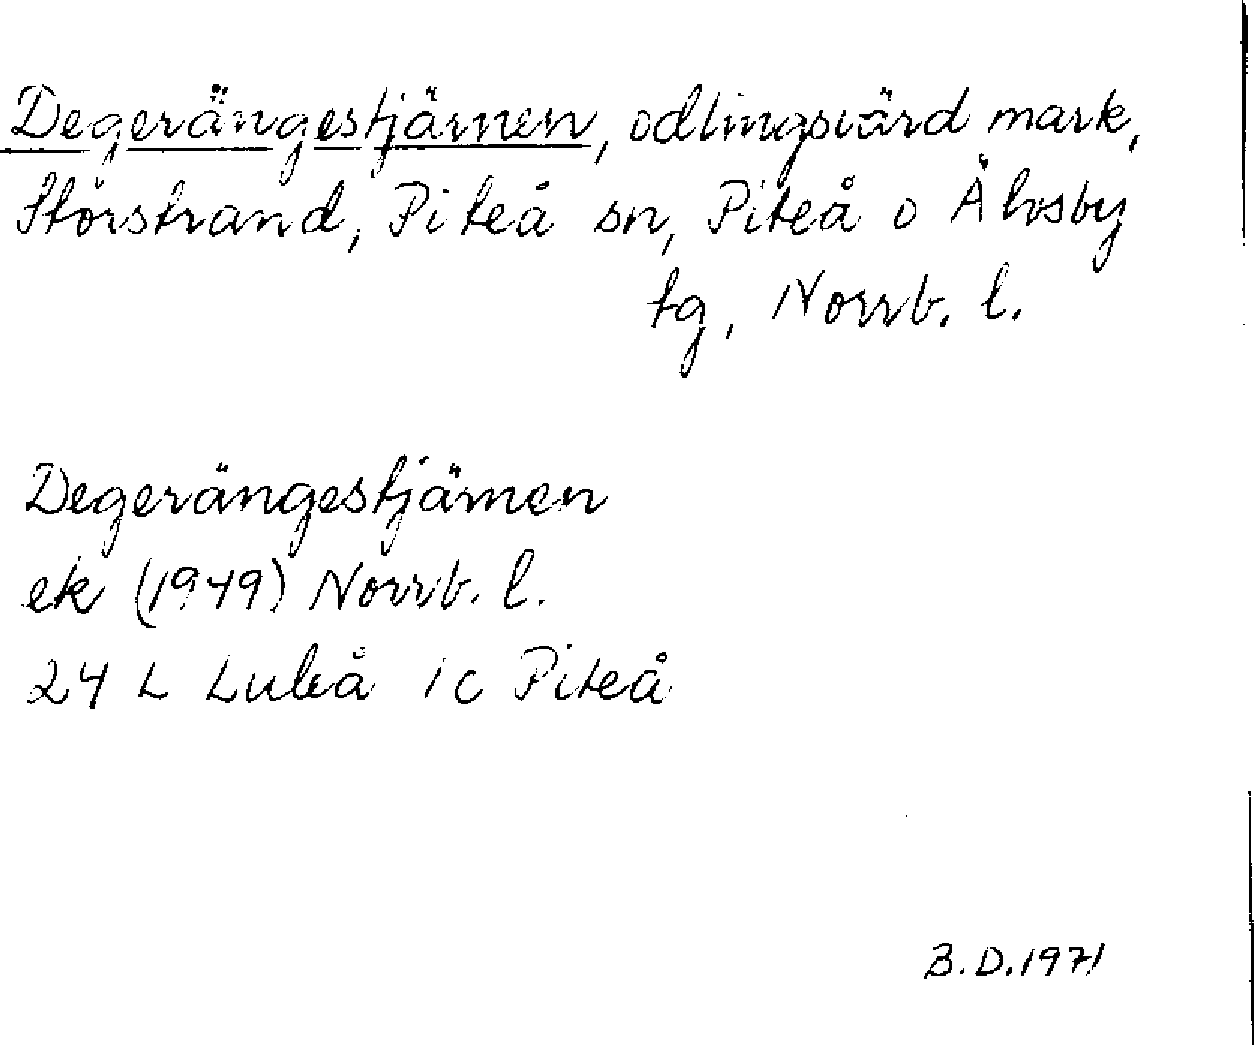 Degerängestjärnen, odlingsvärd mark,
Storstrand, Piteå sn, Piteå o Älvsby
tg, Norrb. l.
Degerängestjärnen
ek (1949) Norrb. l.
24 L Luleå 1c Piteå
B.D. 1971